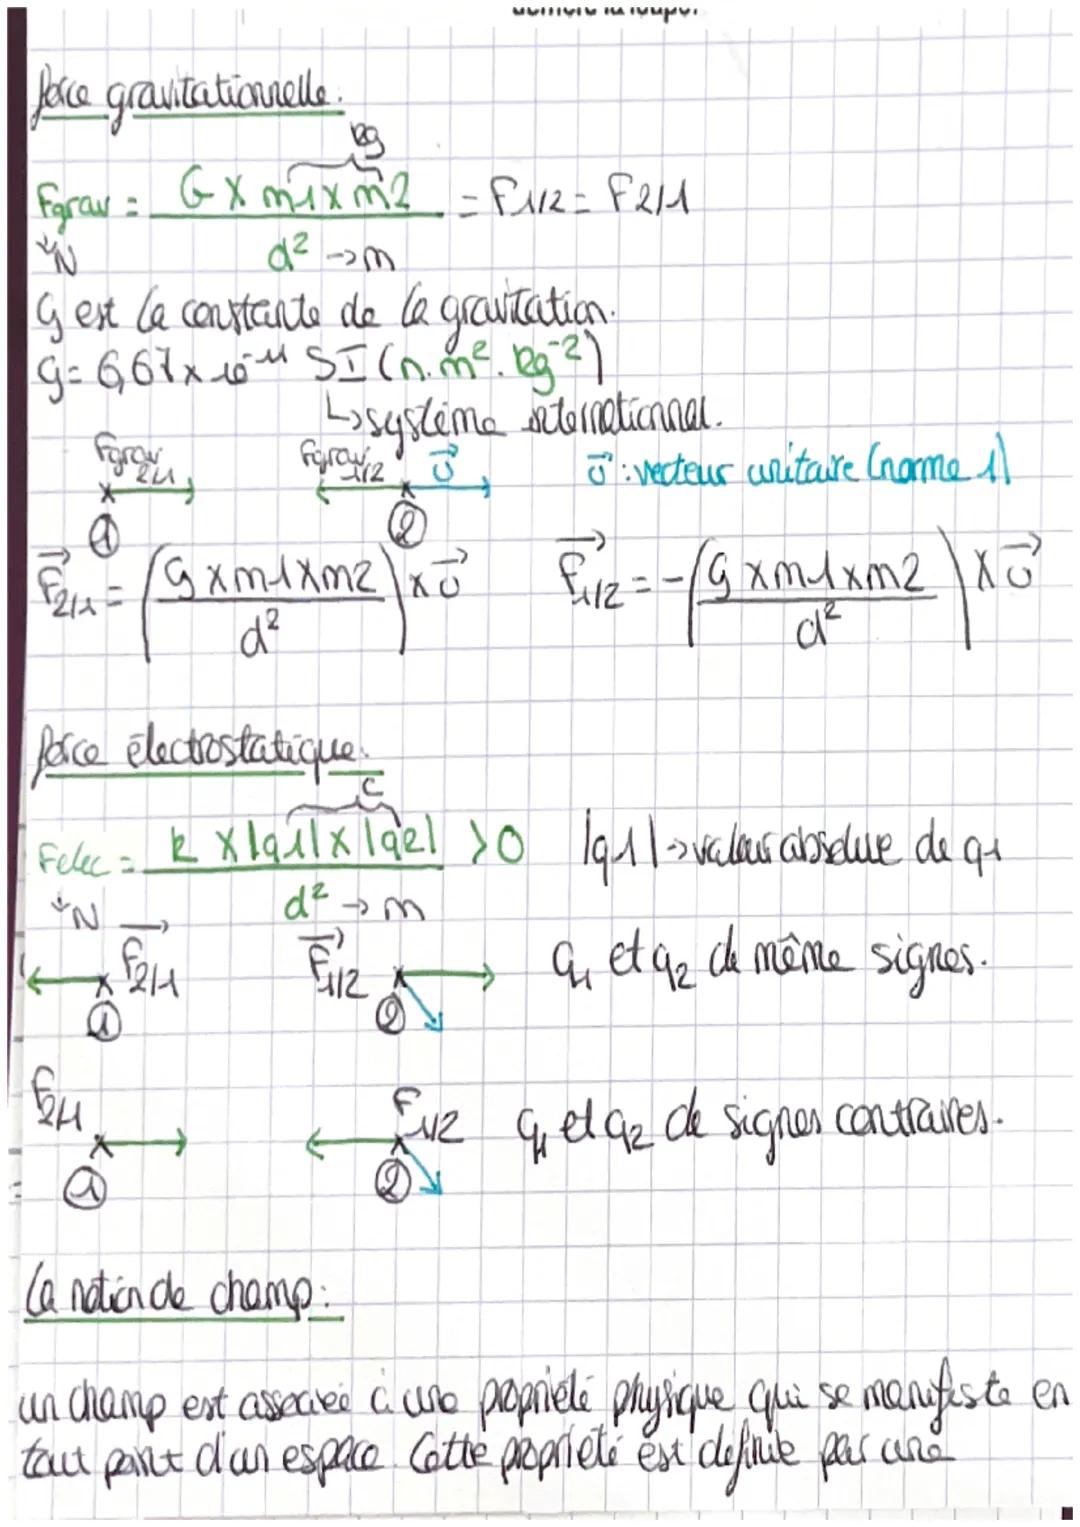 derrière la loupe.
force gravitationnelle:
kg
Fgrav = G x m1 x m2 / d² = F1/2 = F2/1
↓N → m
G est la constante de la gravitation.
G = 6,67 x 10⁻¹¹ SI (n.m².kg⁻²)
↳ système international.
Fgrav 2/1 Fgrav 1/2 u⃗ u⃗ : vecteur unitaire (norme 1)
① ②
F⃗2/1 = (G x m1 x m2 / d²) x u⃗ F⃗1/2 = - (G x m1 x m2 / d²) x u⃗
force électrostatique:
C
Felec = k x |q1| x |q2| / d² > 0 |q1| → valeur absolue de q1
↓N → m
F⃗2/1 F⃗1/2 q1 et q2 de même signes.
① ②
F2/1 F1/2 q1 et q2 de signes contraires.
① ②
La notion de champ:
un champ est associée à une propriété physique qui se manifeste en
tout point d'un espace. Cette propriété est définie par une